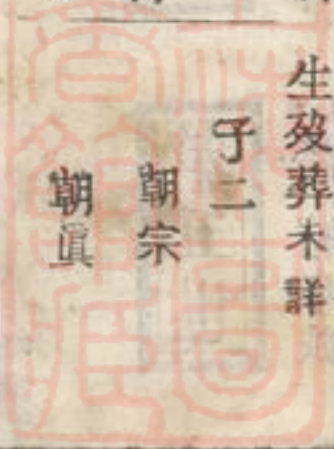 生歿葬未詳
子二
朝宗
朝眞